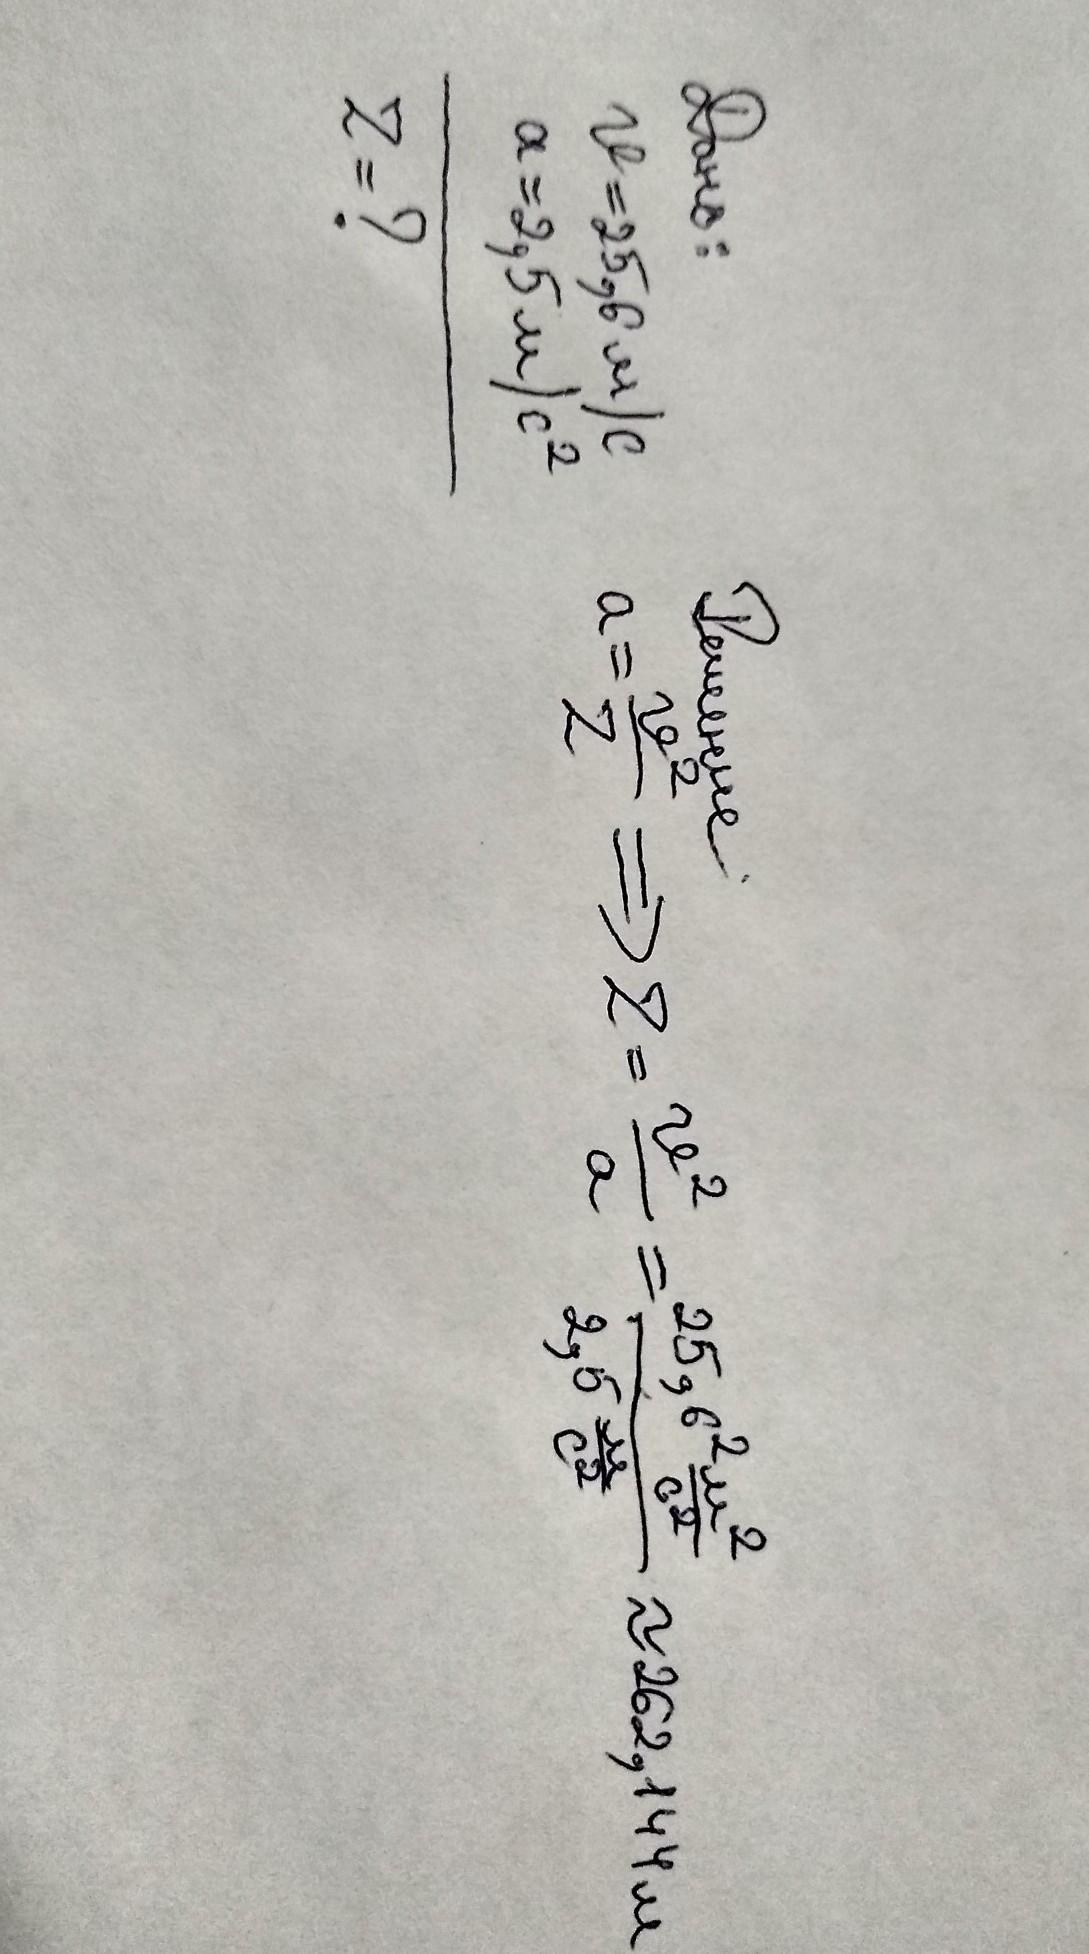 Дано:
v = 25,6 м/с
a = 2,5 м/с²
r = ?
Решение
a = v²/r ⇒ r = v²/a = 25,6² м²/с² / 2,5 м/с² ≈ 262,144 м